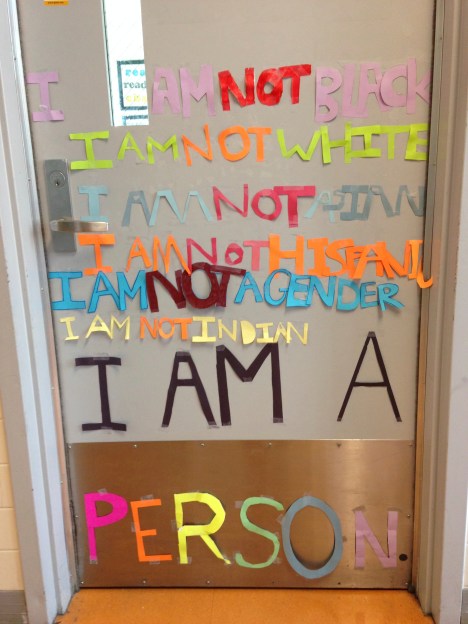 I AM NOT BLACK
I AM NOT WHITE
I AM NOT ASIAN
I AM NOT HISPANIC
I AM NOT A GENDER
I AM NOT INDIAN
I AM A
PERSON